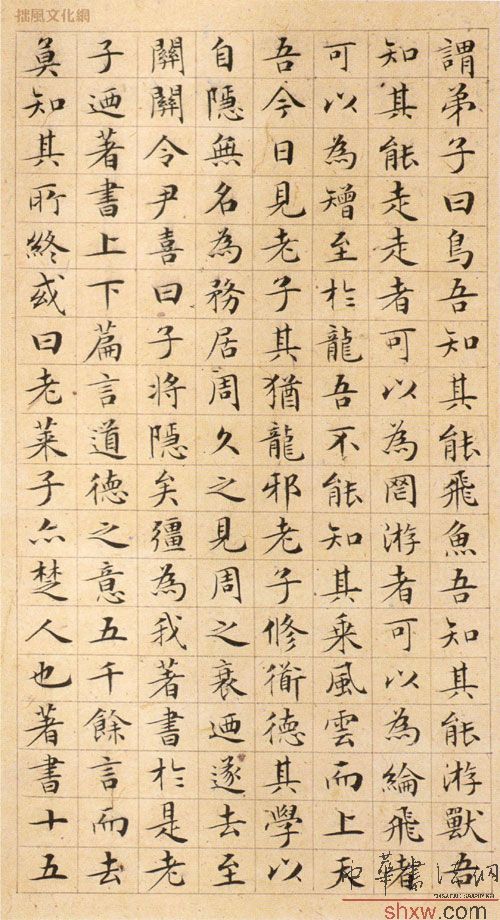 拙風文化網
謂弟子曰鳥吾知其能飛魚吾知其能游獸吾
知其能走走者可以為罔游者可以為綸飛者
可以為矰至於龍吾不能知其乘風雲而上天
吾今日見老子其猶龍邪老子修衜德其學以
自隱無名為務居周久之見周之衰迺遂去至
關關令尹喜曰子將隱矣彊為我著書於是老
子迺著書上下篇言道德之意五千餘言而去
莫知其所終或曰老萊子亦楚人也著書十五
中華書法網
shxw.com